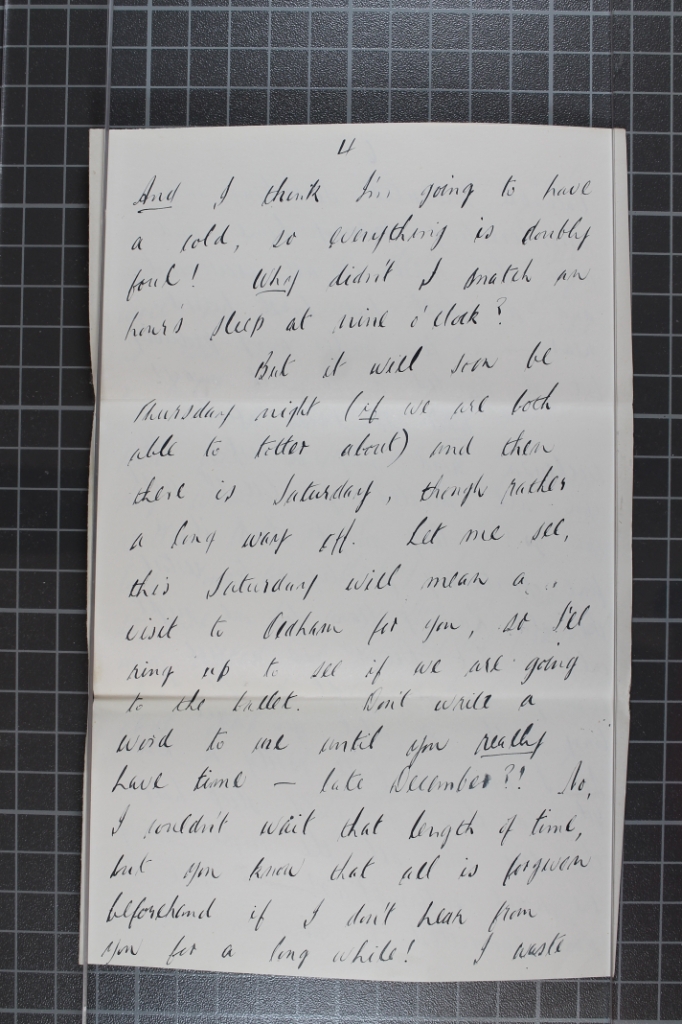 4
And I think I'm going to have
a cold, so everything is doubly
foul! Why didn't I snatch an
hour's sleep at nine o'clock?
But it will soon be
Thursday night (if we are both
able to totter about) and then
there is Saturday, though rather
a long way off. Let me see,
this Saturday will mean a
visit to Oldham for you, so I'll
ring up to see if we are going
to the ballet. Don't write a
word to me until you really
have time — late December?! No,
I couldn't wait that length of time,
but you know that all is forgiven
beforehand if I don't hear from
you for a long while! I waste